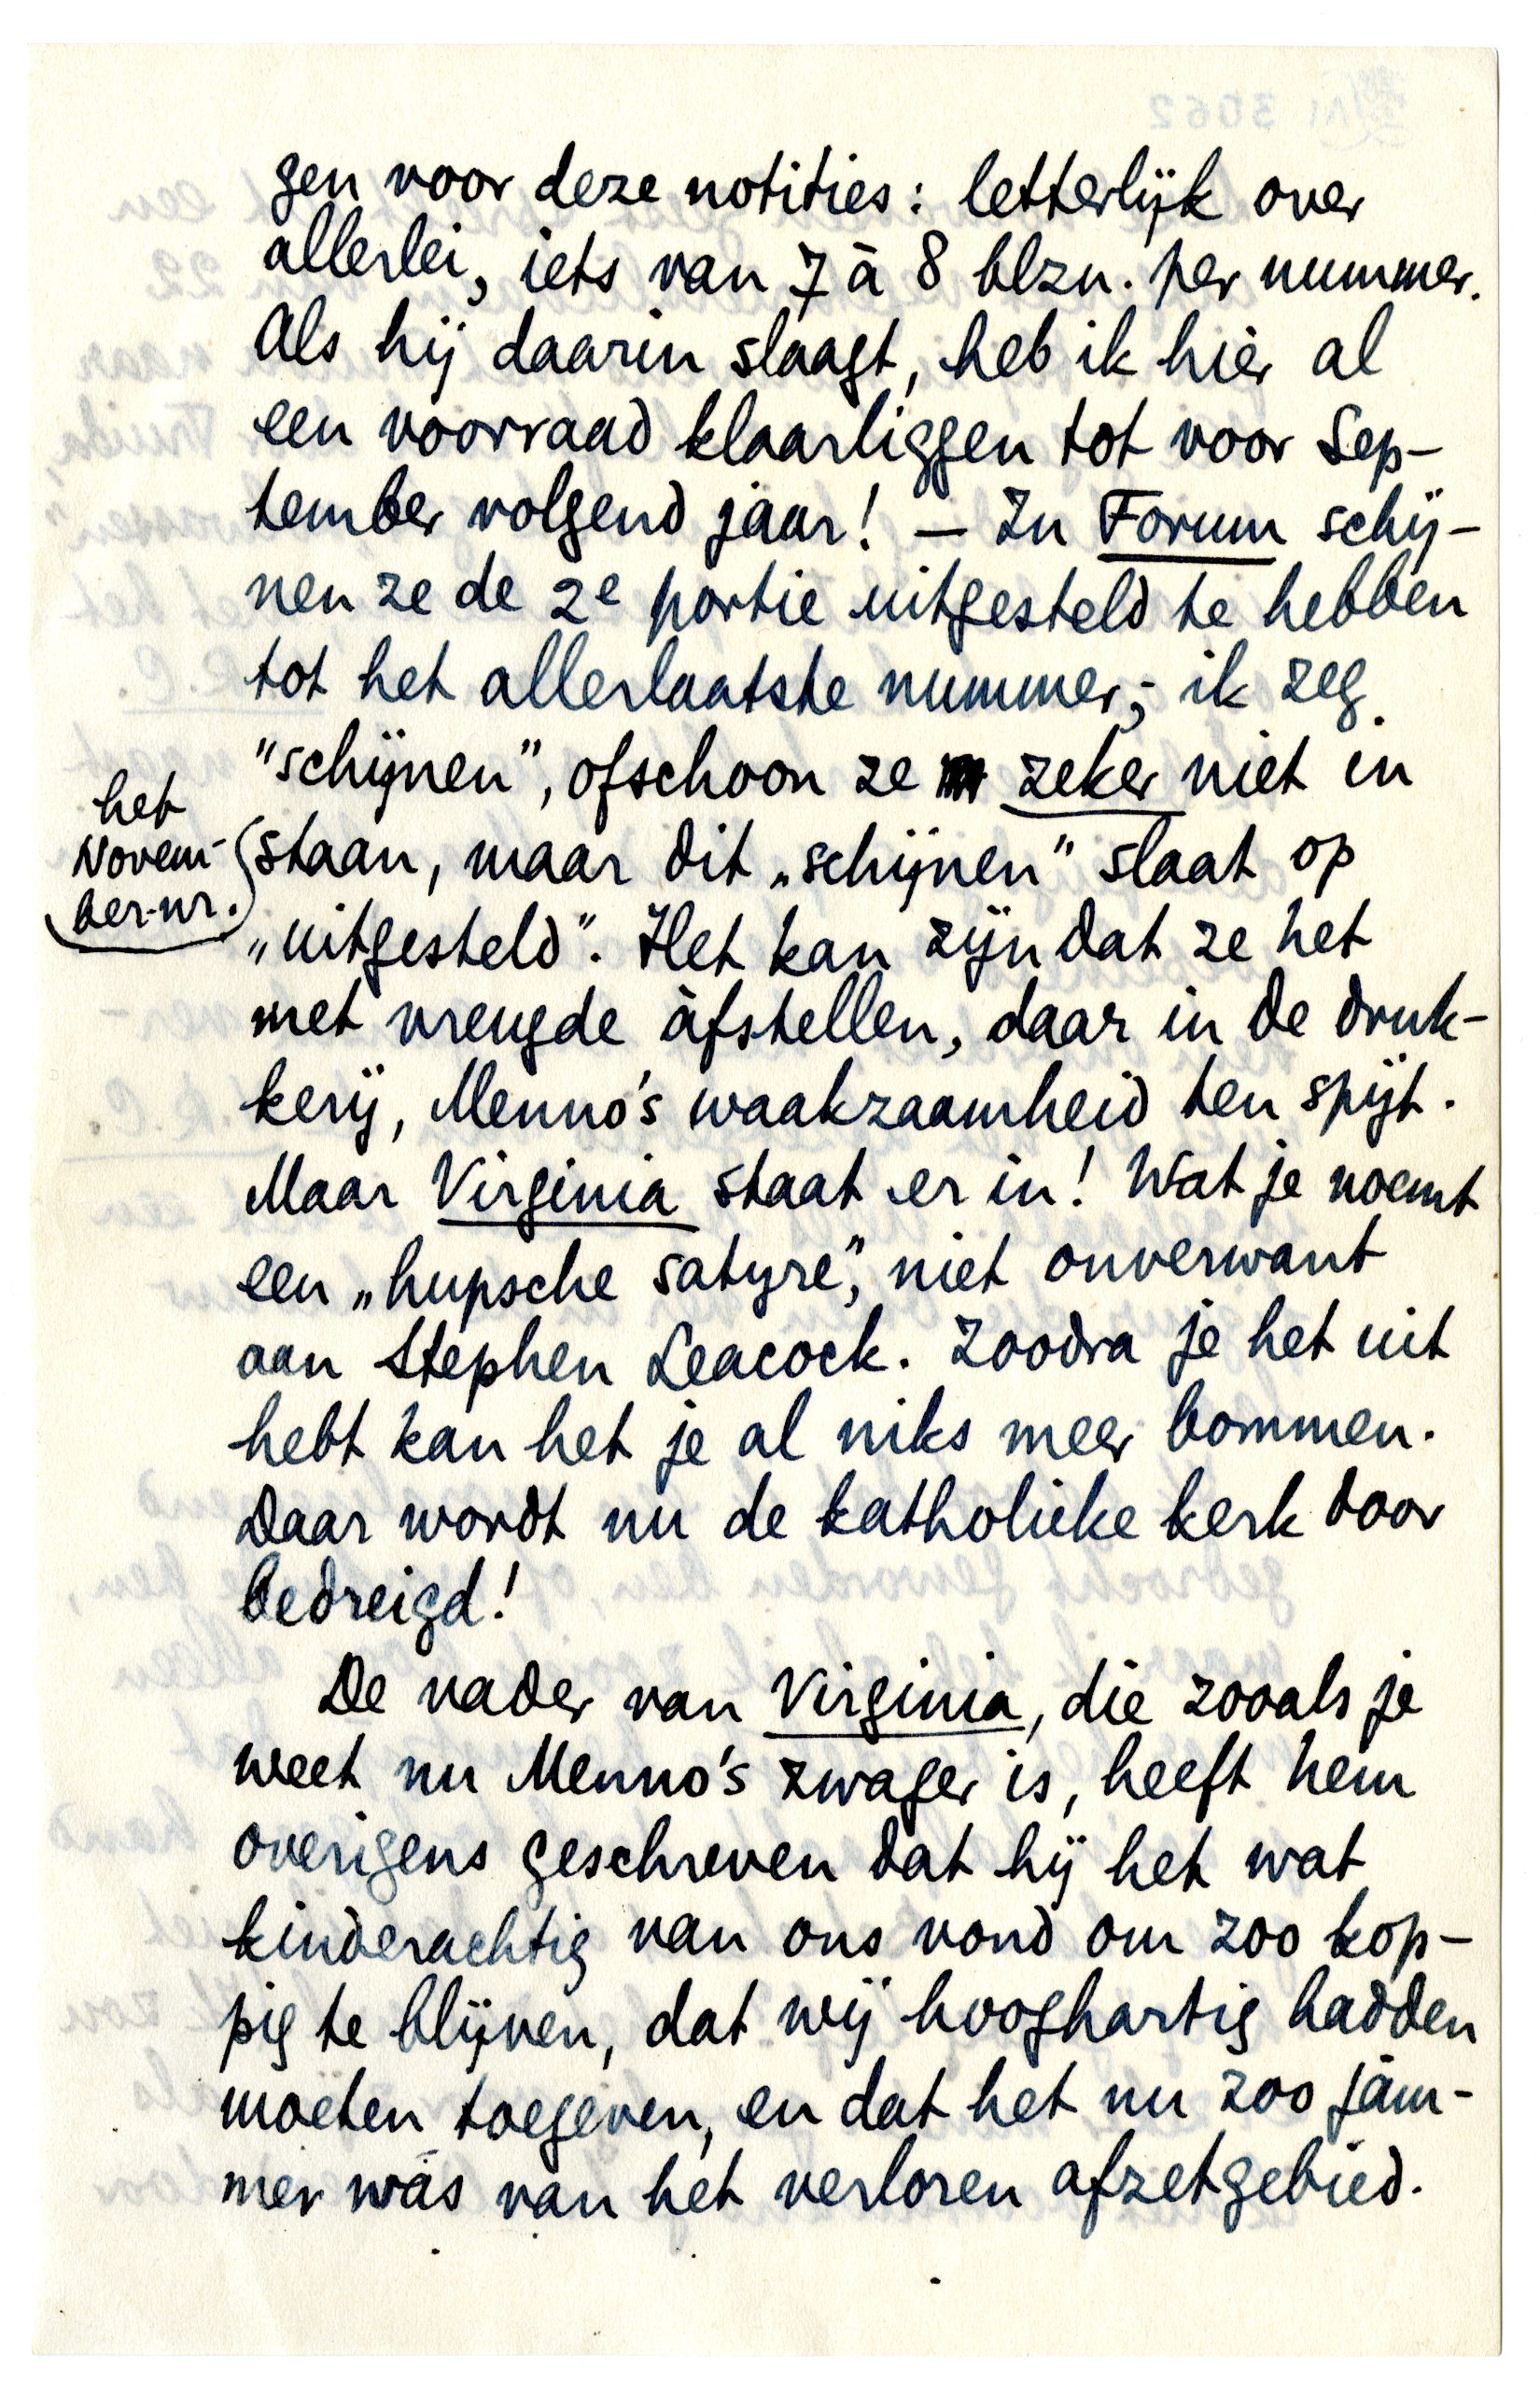 gen voor deze notities: letterlijk over
allerlei, iets van 7 à 8 blzn. per nummer.
Als hij daarin slaagt, heb ik hier al
een voorraad klaarliggen tot voor Sep-
tember volgend jaar! – In Forum schij-
nen ze de 2e portie uitgesteld te hebben
tot het allerlaatste nummer; – ik zeg
"schijnen", ofschoon ze zeker niet in
het
Novem-
ber-nr.
staan, maar dit „schijnen" slaat op
„uitgesteld". Het kan zijn dat ze het
met vreugde àfstellen, daar in de druk-
kerij, Menno's waakzaamheid ten spijt.
Maar Virginia staat er in! Wat je noemt
een „hupsche satyre", niet onverwant
aan Stephen Leacock. Zoodra je het uit
hebt kan het je al niks meer bommen.
Daar wordt nu de katholieke kerk door
bedreigd!
De vader van Virginia, die zooals je
weet nu Menno's zwager is, heeft hem
overigens geschreven dat hij het wat
kinderachtig van ons vond om zoo kop-
pig te blijven, dat wij hooghartig hadden
moeten toegeven, en dat het nu zoo jam-
mer was van het verloren afzetgebied.